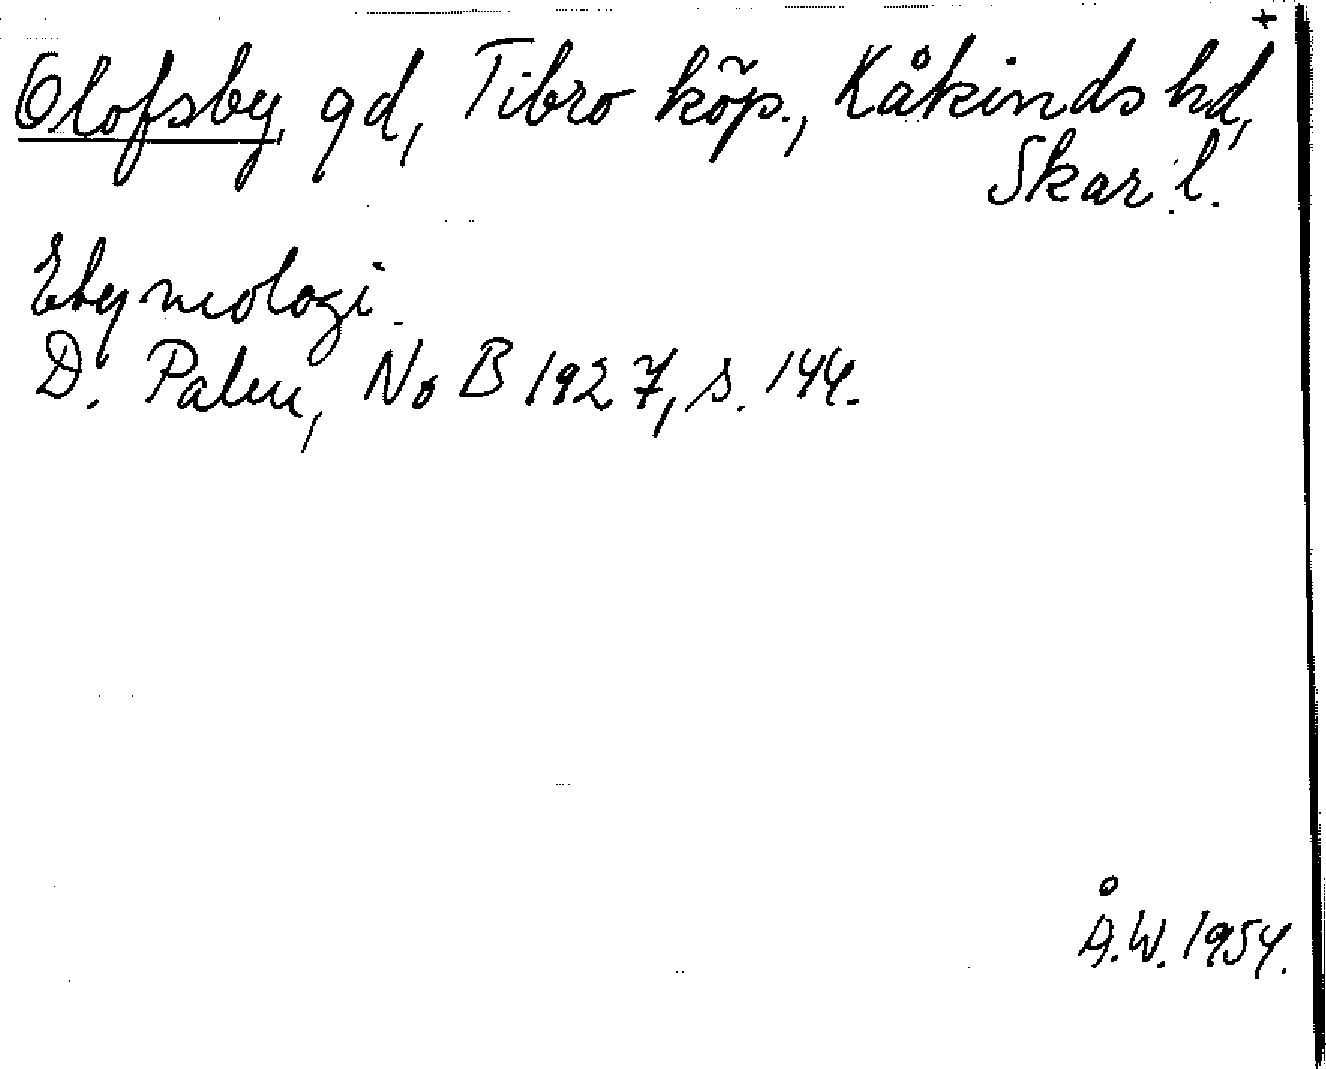 +
Olofsby, gd, Tibro köp., Kåkinds hd,
Skar. l.
Etymologi.
D. Palm, NoB 1927, s. 144.
Å.W. 1954.